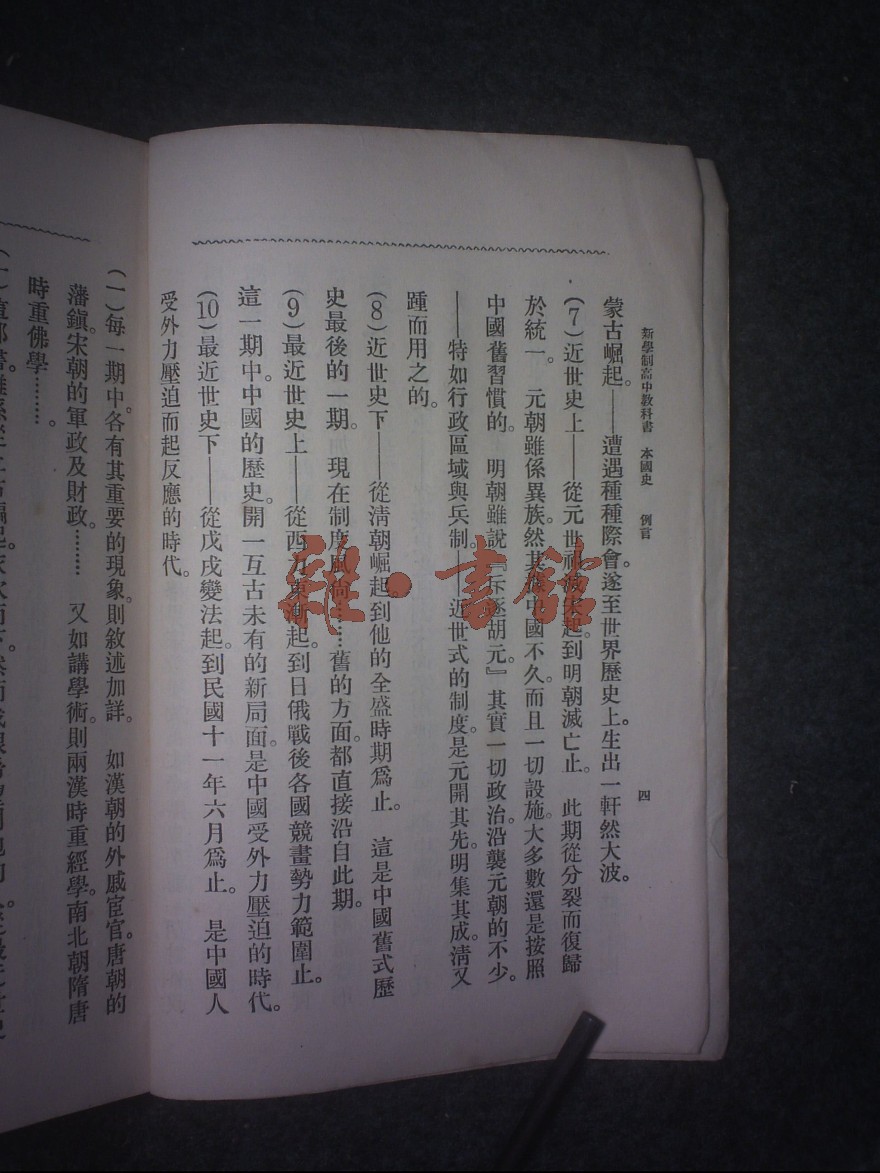 新學制高中教科書　本國史　例言
四
蒙古崛起。——遭遇種種際會。遂至世界歷史上。生出一軒然大波。
(7)近世史上——從元世祖滅宋起。到明朝滅亡止。　此期從分裂而復歸
於統一。　元朝雖係異族。然其
中國不久。而且一切設施。大多數還是按照
中國舊習慣的。　明朝雖說『斥逐胡元。』其實一切政治。沿襲元朝的不少。
——特如行政區域與兵制——近世式的制度。是元開其先。明集其成。清又
踵而用之的。
(8)近世史下——從清朝崛起。到他的全盛時期爲止。　這是中國舊式歷
史最後的一期。　現在制度風尙………舊的方面。都直接沿自此期。
(9)最近世史上——從西力東漸起。到日俄戰後各國競畫勢力範圍止。
這一期中中國的歷史。開一互古未有的新局面。是中國受外力壓迫的時代。
(10)最近世史下——從戊戌變法起。到民國十一年六月爲止。　是中國人
受外力壓迫而起反應的時代。
(一)每一期中。各有其重要的現象。則敘述加詳。　如漢朝的外戚宦官。唐朝的
藩鎭。宋朝的軍政及財政。………　又如講學術。則兩漢時重經學。南北朝隋唐
時重佛學………。
雜·書館